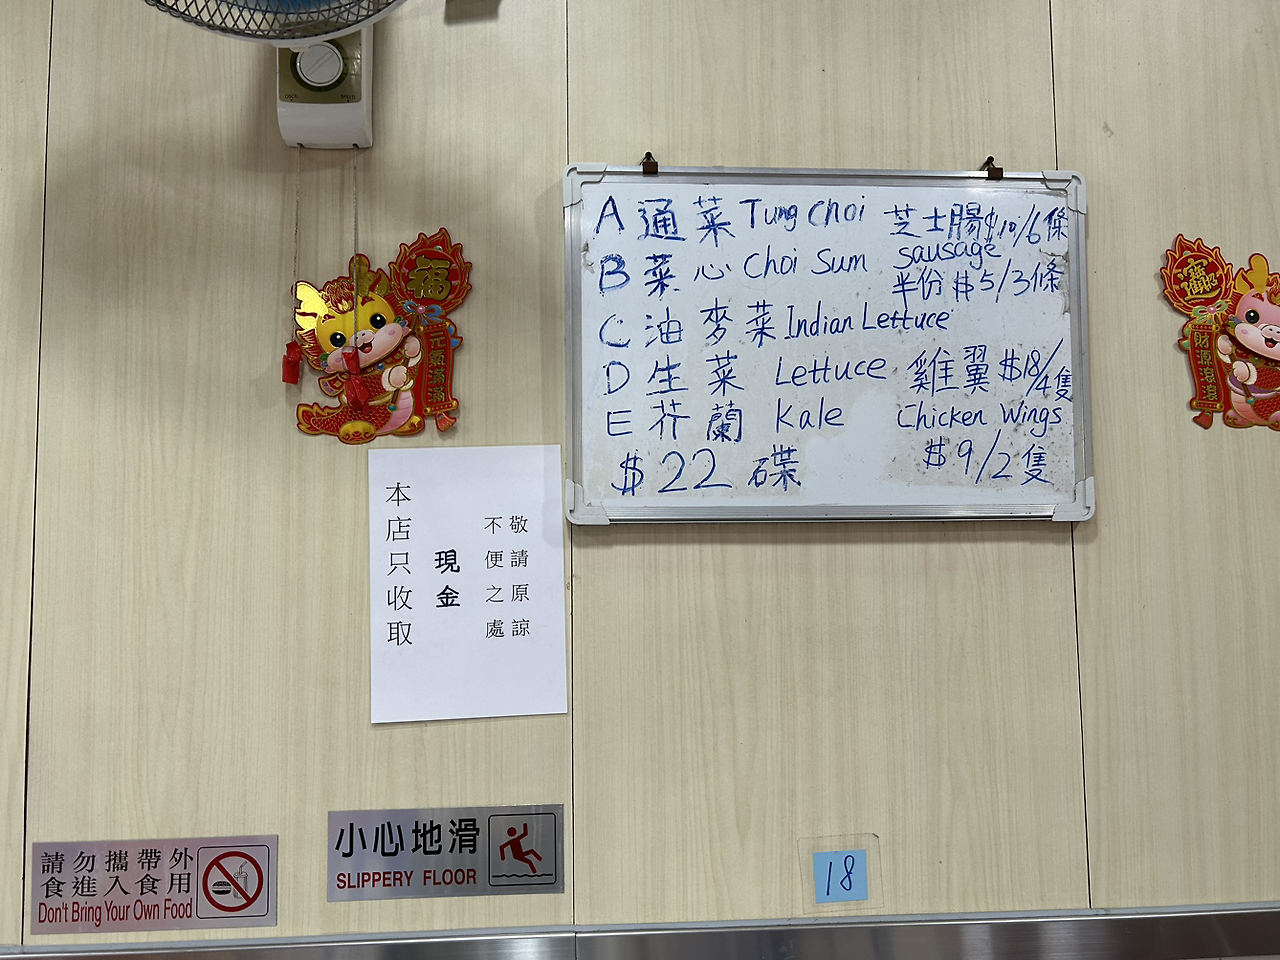 A 通菜 Tung Choi
B 菜心 Choi Sum
C 油麥菜 Indian Lettuce
D 生菜 Lettuce
E 芥蘭 Kale
$22 碟
芝士腸 $10/6條
sausage
半份 $5/3條
雞翼 $18/4隻
Chicken Wings
$9/2隻
福
元氣滿滿
財源滾滾
本店只收取
現金
不便之處
敬請原諒
小心地滑
SLIPPERY FLOOR
請勿攜帶外
食進入食用
Don't Bring Your Own Food
18